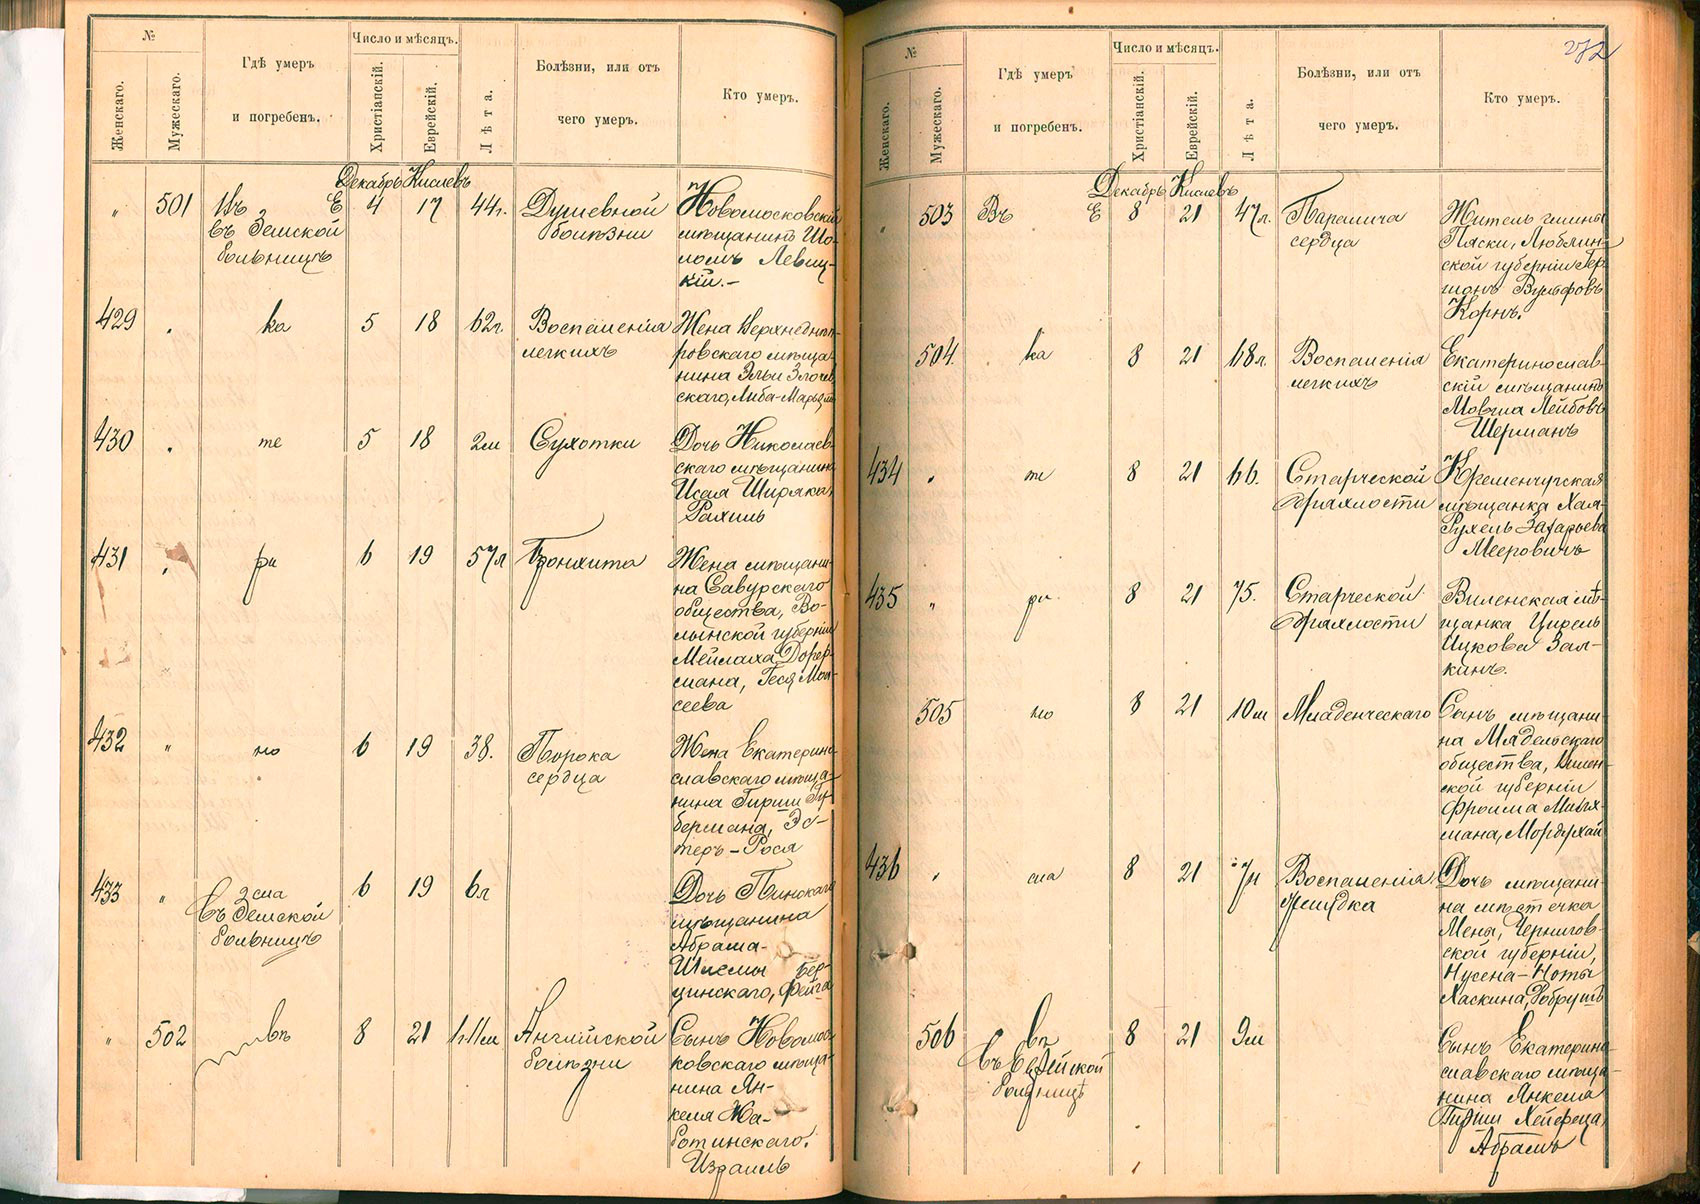 №
Женскаго.
Мужескаго.
Гдѣ умеръ
и погребенъ.
Число и мѣсяцъ.
Христіанскій.
Еврейскій.
Лѣта.
Болѣзни, или отъ
чего умеръ.
Кто умеръ.
Декабрь Кислевъ
„ 501 Е 4 17 44г. Душевной
болѣзни
въ Земской
больницѣ
Новомосковскій
мѣщанинъ Шо-
ломъ Левиц-
кій.-
429 „ ка 5 18 62г. Воспаленія
легкихъ
Жена Верхнеднѣп-
ровскаго мѣща-
нина Эльи Злочев
скаго, Либа-Марьям
430 „ те 5 18 2м Сухотки
Дочь Николаев-
скаго мѣщанина
Исая Ширяка,
Рахиль
431 „ ри 6 19 57л Бронхита
Жена мѣщани-
на Савурскаго
общества, Во-
лынской губерніи
Мейлаха Дорф-
мана, Геся Мои-
сеева
432 „ но 6 19 38. Порока
сердца
Жена Екатерино-
славскаго мѣща-
нина Гирши Гу-
бермана, Эс-
теръ-Рося
433 „ сла 6 19 6л
въ Земской
больницѣ
Дочь Пинскаго
мѣщанина
Абрама-
Шлемы Бер-
цинскаго, Фейга
„ 502 въ 8 21 1г.11м Англійской
болѣзни
Сынъ Новомос-
ковскаго мѣща-
нина Ян-
келя Жа-
ботинскаго.
Израиль
272
№
Женскаго.
Мужескаго.
Гдѣ умеръ
и погребенъ.
Число и мѣсяцъ.
Христіанскій.
Еврейскій.
Лѣта.
Болѣзни, или отъ
чего умеръ.
Кто умеръ.
Декабрь Кислевъ
„ 503 Въ Е 8 21 47л. Паралича
сердца
Житель гмины
Пяски, Люблин-
ской губерніи Гер-
шонъ Вульфовъ
Корнъ.
504. ка 8 21 68л. Воспаленія
легкихъ
Екатеринослав-
скій мѣщанинъ
Мовша Лейбовъ
Шерманъ
434 „ те 8 21 66. Старческой
дряхлости
Кременчугская
мѣщанка Хая-
Рухель Захарьева
Мееровичъ
435 „ ри 8 21 75. Старческой
дряхлости
Виленская мѣ-
щанка Цирель
Ицкова Зал-
кинъ.
505 но 8 21 10м Младенческаго
Сынъ мѣщани-
на Мядельскаго
общества, Вилен-
ской губерніи
Фроима
Мордухай
436 „ сла 8 21 7м Воспаленія
желудка
Дочь мѣщани-
на мѣстечка
Мена, Чернигов-
ской губерніи,
Нусена-Ноты
Хаскина, Добрушъ
506 въ 8 21 9м
въ Еврейской
больницѣ
Сынъ Екатерино-
славскаго мѣща-
нина Янкеля
Гирши Хейфеца,
Абрамъ